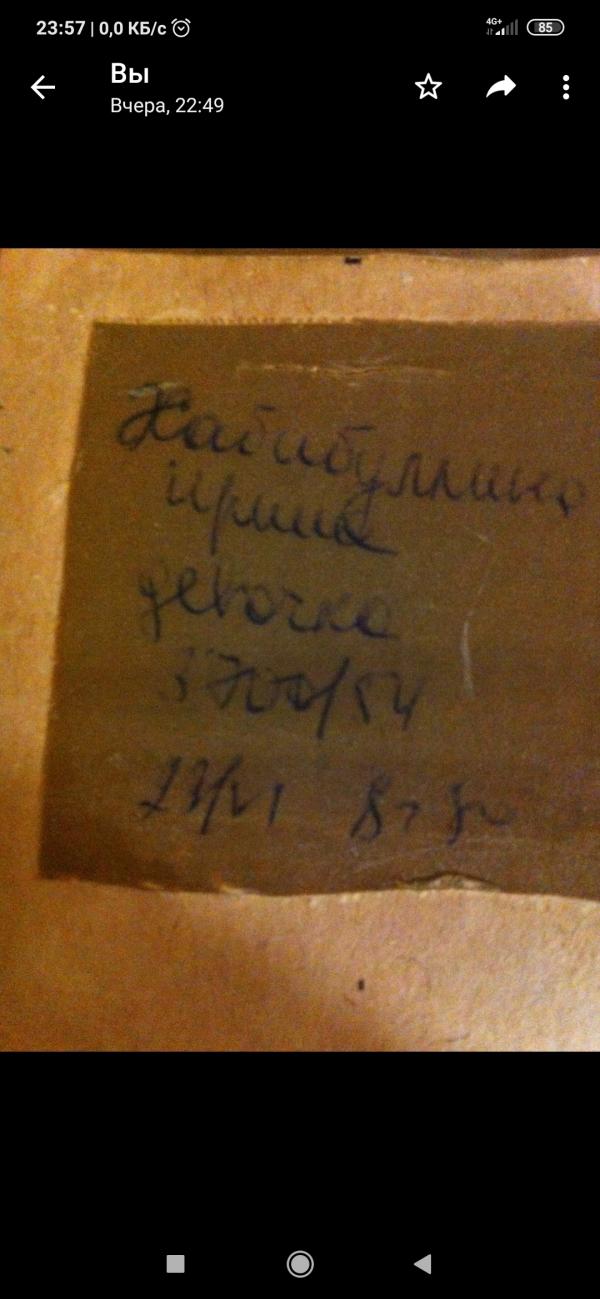 23:57 | 0,0 КБ/с
4G+
85
Вы
Вчера, 22:49
Хабибуллина
Ирина
девочка
3700/54